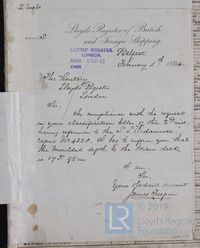 Lloyd's Register of British
and Foreign Shipping
LLOYD'S REGISTER
LONDON.
RECD
Belfast
February 5th 1894
The Secretary
Lloyd's Register
London
Sir,
In compliance with the request
in your classification letter of the
having reference to the S.S.
report No 4220. I beg to inform you that
the moulded depth to the Main deck
is
I am,
Sir,
Your obedient servant
James
© 2019
Lloyd's
Register
Foundation